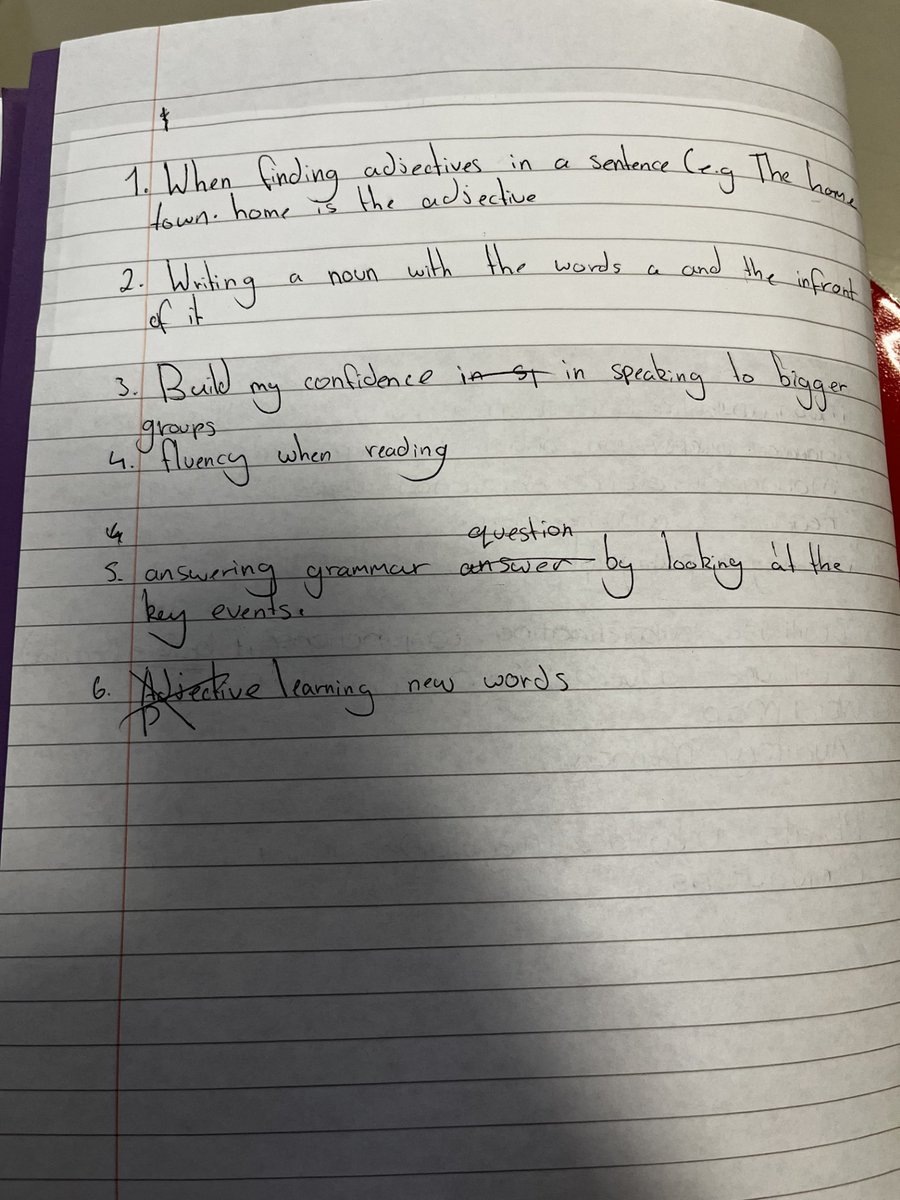 1. When finding adjectives in a sentence (e.g The home
town. home is the adjective
2. Writing a noun with the words a and the infront
of it
3. Build my confidence in st in speaking to bigger
groups
4. fluency when reading
4
question
5. answering grammar answer by looking at the
key events.
6. Adjective learning new words